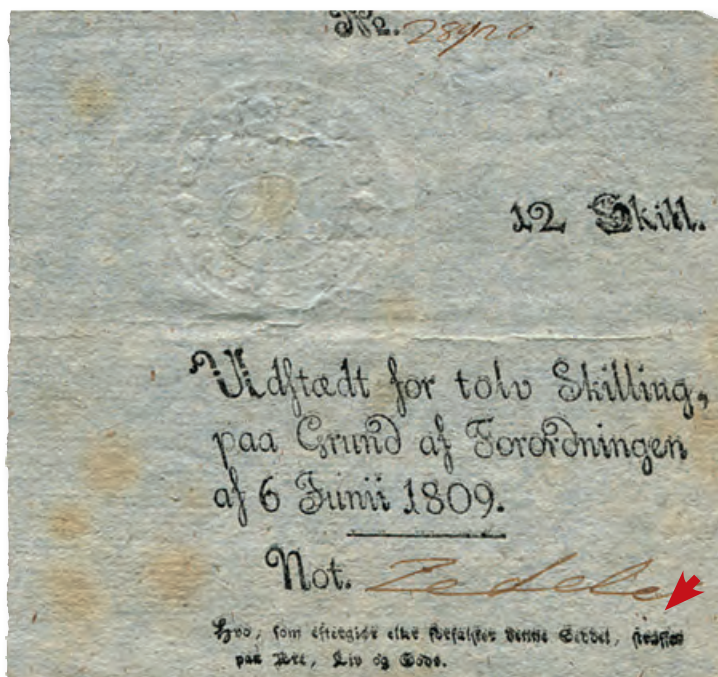 No. 28920
12 Skill.
Udstædt for tolv Skilling,
paa Grund af Forordningen
af 6 Junii 1809.
Not.
Hvo, som eftergiör eller forfalsker denne Seddel, straffes
paa Ære, Liv og Gods.